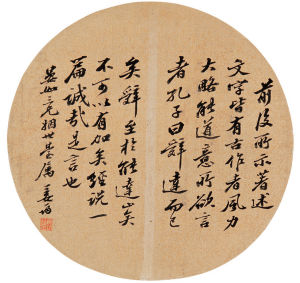 前後所示著述
文字皆有古作者風力
大略能道意所欲言
者孔子曰辭達而已
矣辭至於能達止矣
不可以有加矣經說一
篇誠哉是言也
姻世屬 姜筠